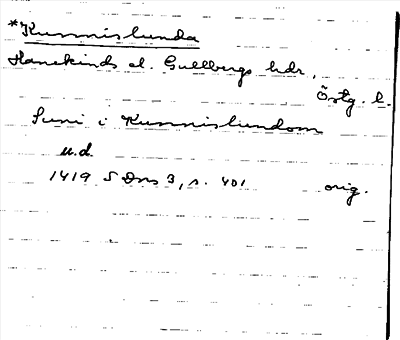 *Kunnislunda
Hanekinds el. Gullbergs hdr,
Östg. l.
Suni i Kunnislundom
u.d.
1419 SDns 3, s. 401 orig.